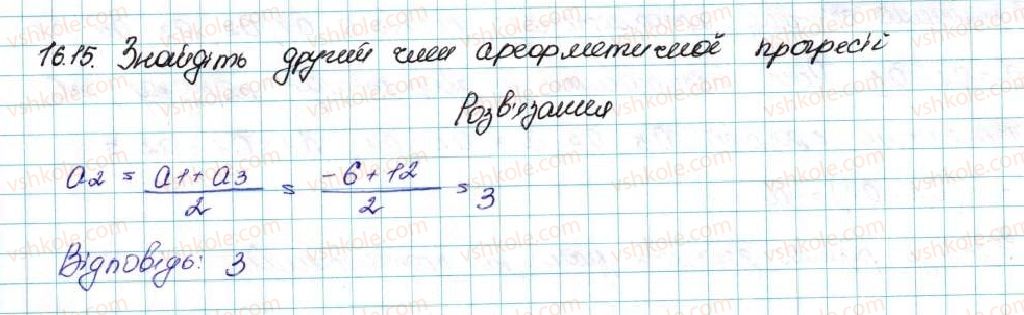 16.15. Знайдіть другий член ареорметичної прогресії
Розв'язання
a2 = a1+a3 / 2 = -6+12 / 2 = 3
Відповідь: 3